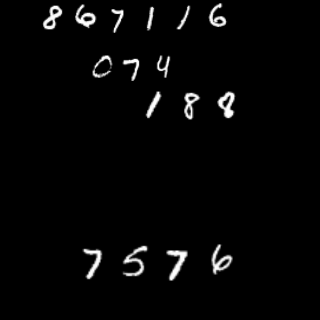 867116
074
188
7576